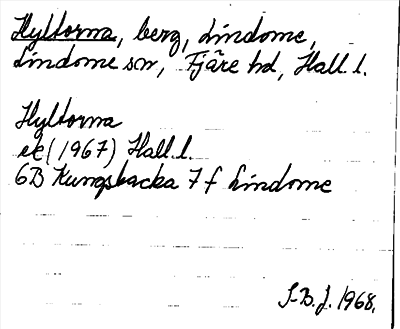 Hyltorna, berg, Lindome,
Lindome sn, Fjäre hd, Hall. l.
Hyltorna
ek (1967) Hall. l.
6B Kungsbacka 7 f Lindome
S-B. J. 1968.